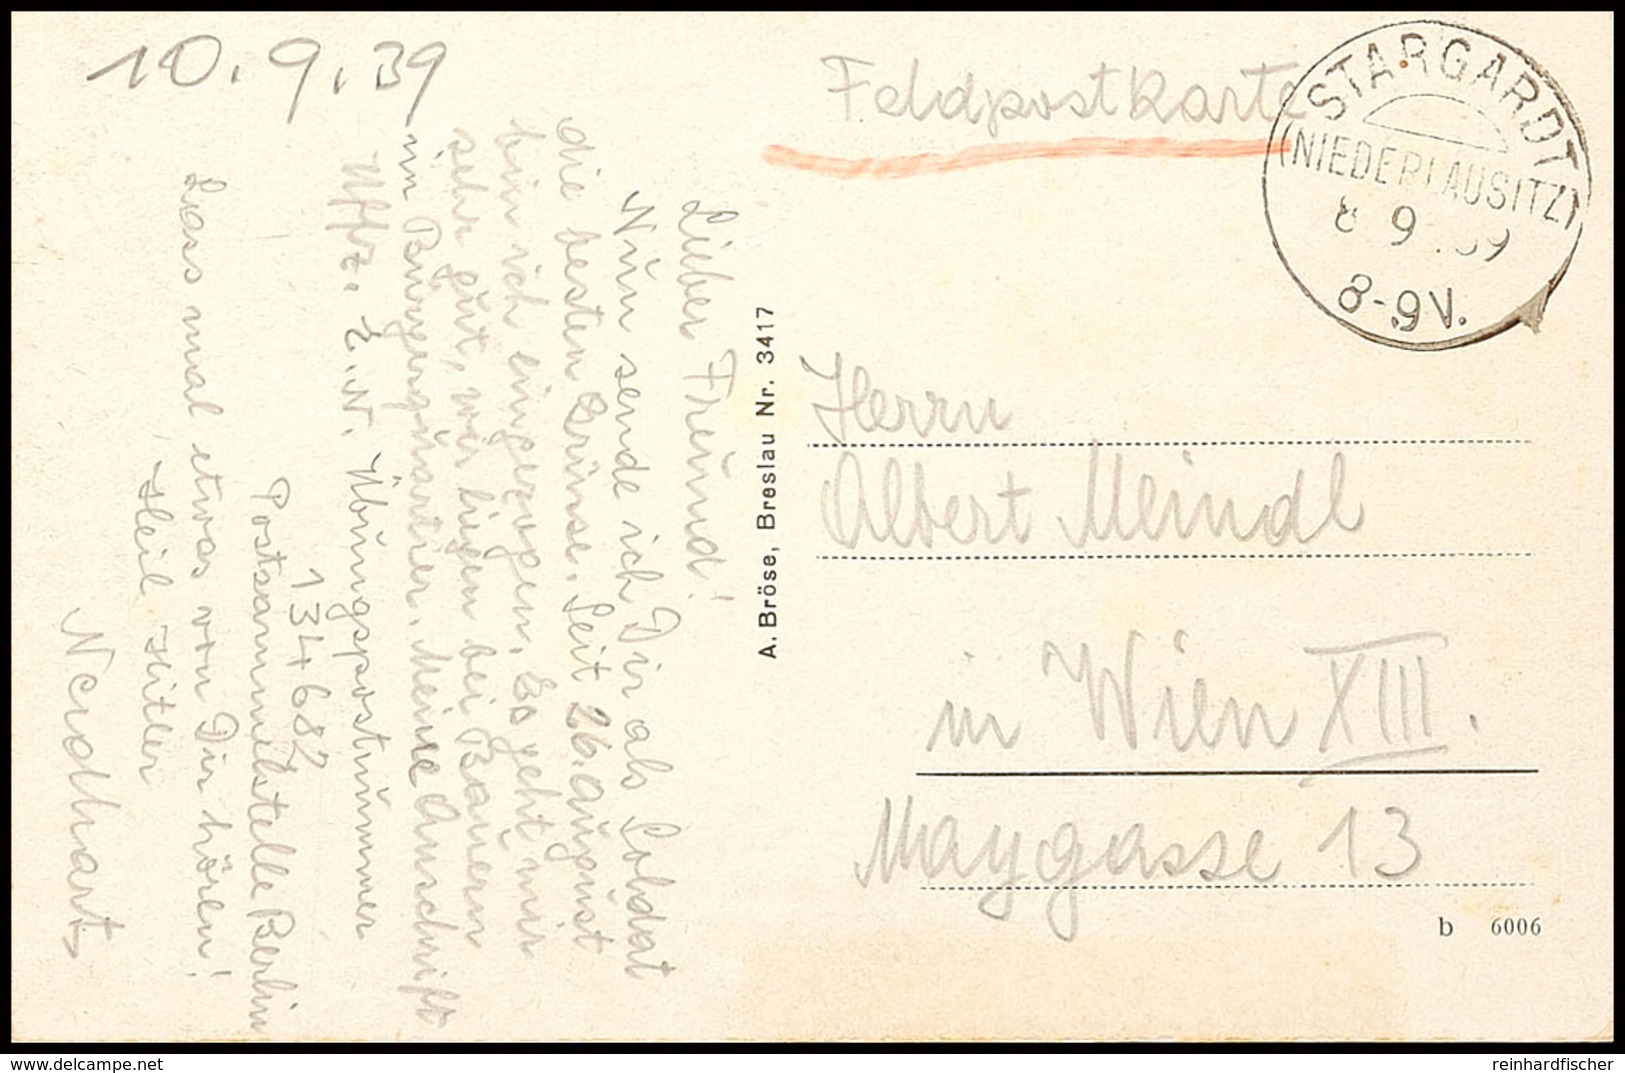 10.9.39
Lieber Freund!
Nun sende ich Dir als Soldat
die besten Grüsse. Seit 26. August
bin ich eingezogen. Es geht mir
sehr gut, wir liegen bei Bauern
im Bürgerquartier. Meine Anschrift
Uffz. E. N. Übungspostnummer
134682
Postsammelstelle Berlin
Lass mal etwas von Dir hören!
Heil Hitler
Neidhart
A. Bröse, Breslau Nr. 3417
Feldpostkarte
STARGARDT
(NIEDERLAUSITZ)
8 9 .39
8-9V.
Herrn
Albert Meindl
in Wien XIII.
Maygasse 13
b 6006
delcampe.net
reinhardfischer